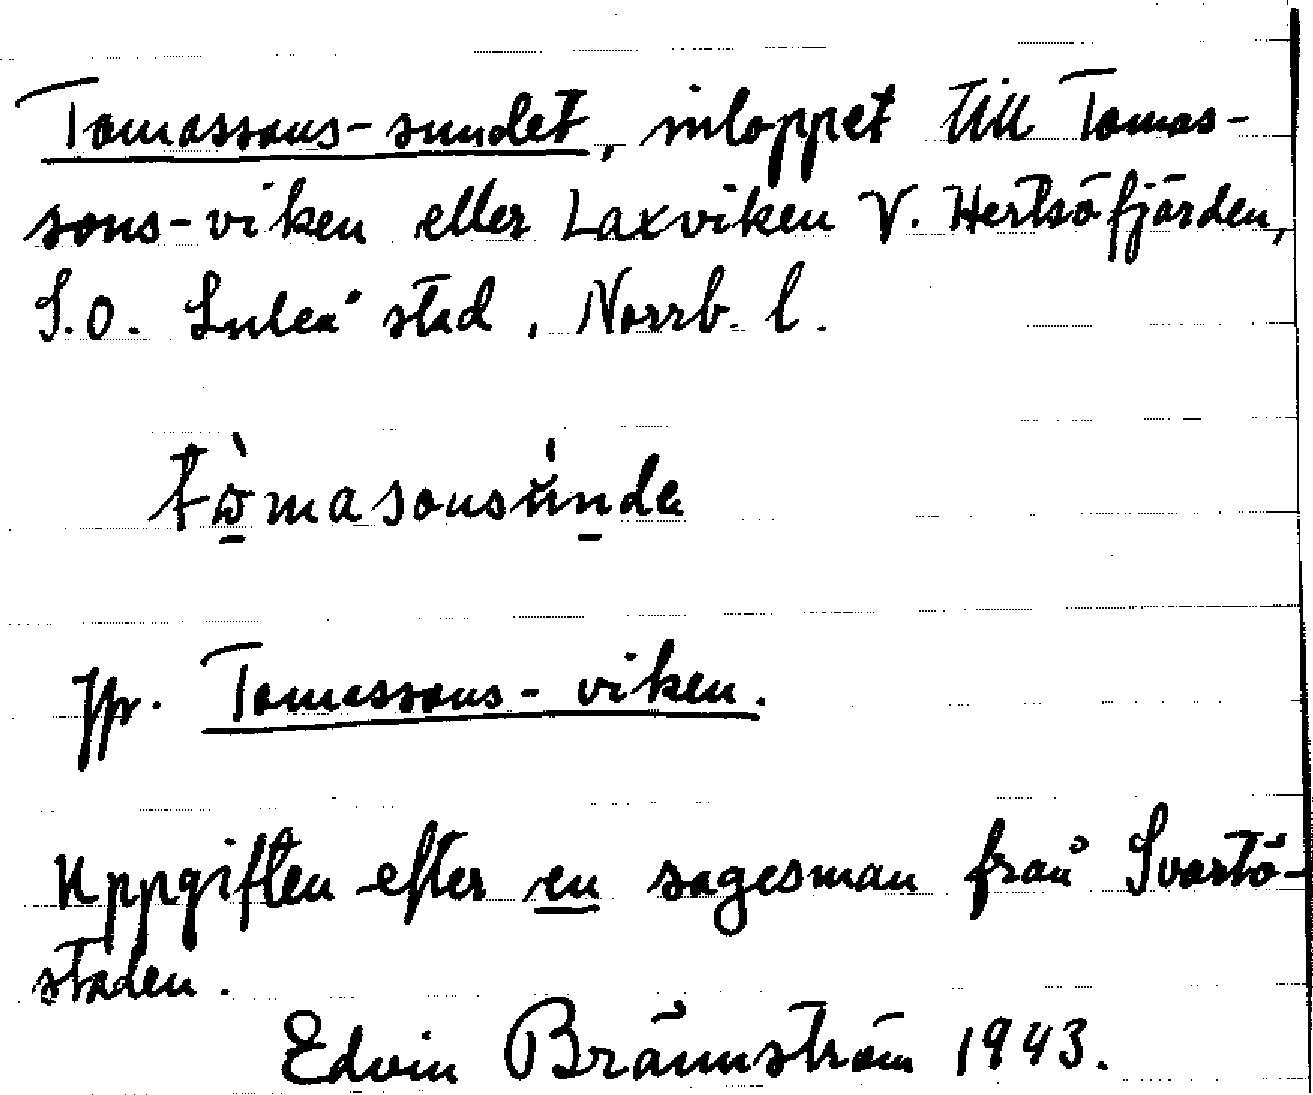 Tomassons-sundet, inloppet till Tomas-
sons-viken eller Laxviken V. Hertsöfjärden,
S.O. Luleå stad, Norrb. l.
Jfr. Tomassons-viken.
Uppgiften efter en sagesman från Svartö-
staden.
Edvin Brännström 1943.